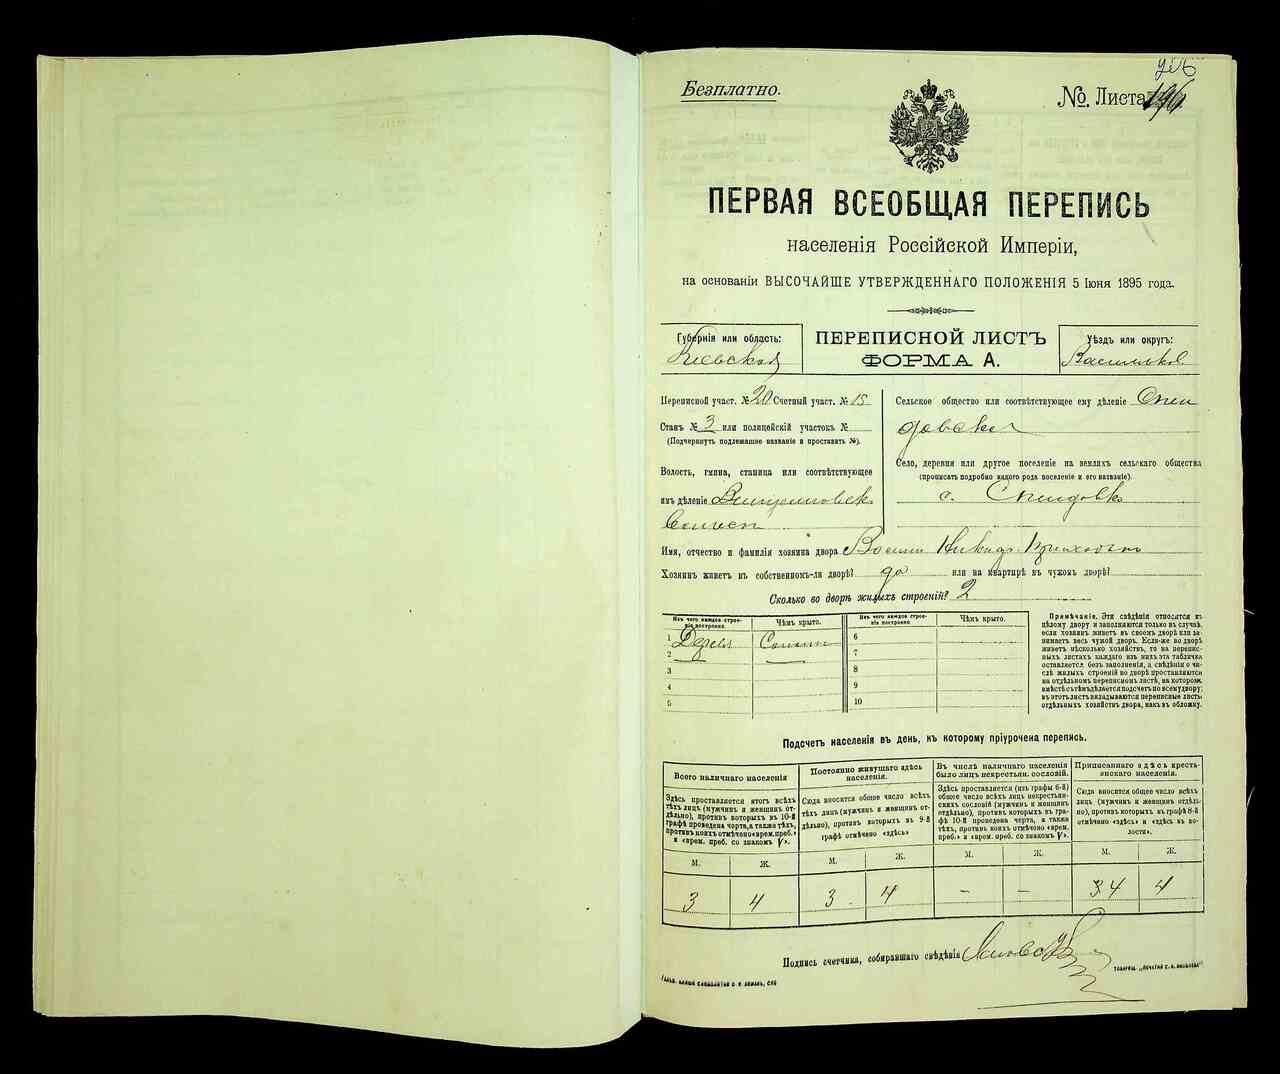 Безплатно.
№ Листа 196
ПЕРВАЯ ВСЕОБЩАЯ ПЕРЕПИСЬ
населенія Россійской Имперіи,
на основаніи ВЫСОЧАЙШЕ УТВЕРЖДЕННАГО ПОЛОЖЕНІЯ 5 Іюня 1895 года.
Губернія или область:
Кіевская
ПЕРЕПИСНОЙ ЛИСТЪ
ФОРМА А.
Уѣздъ или округъ:
Васильков
Переписной участ. № 20 Счетный участ. № 15
Станъ № 3 или полицейскій участокъ №
(Подчеркнуть подлежащее названіе и проставить №).
Волость, гмина, станица или соотвѣтствующее
имъ дѣленіе
Сельское общество или соотвѣтствующее ему дѣленіе
Село, деревня или другое поселеніе на земляхъ сельскаго общества
(прописать подробно какого рода поселеніе и его названіе).
с.
Имя, отчество и фамилія хозяина двора
Хозяинъ живетъ въ собственномъ-ли дворѣ? да или на квартирѣ въ чужомъ дворѣ?
Сколько во дворѣ жилыхъ строеній? 2
Изъ чего каждое строеніе построено.
Чѣмъ крыто.
Изъ чего каждое строеніе построено.
Чѣмъ крыто.
1
2
3
4
5
6
7
8
9
10
Примѣчаніе. Эти свѣдѣнія относятся къ
цѣлому двору и заполняются только въ случаѣ,
если хозяинъ живетъ въ своемъ дворѣ или за-
нимаетъ весь чужой дворъ. Если-же во дворѣ
живетъ нѣсколько хозяйствъ, то на перепис-
ныхъ листахъ каждаго изъ нихъ эта табличка
оставляется безъ заполненія, а свѣдѣнія о чи-
слѣ жилыхъ строеній во дворѣ проставляются
на отдѣльномъ переписномъ листѣ, на которомъ
вмѣстѣ съ тѣмъ дѣлается подсчетъ по всему двору;
въ этотъ листъ вкладываются переписные листы
отдѣльныхъ хозяйствъ двора, какъ въ обложку.
Подсчетъ населенія въ день, къ которому пріурочена перепись.
Всего наличнаго населенія
Здѣсь проставляется итогъ всѣхъ
тѣхъ лицъ (мужчинъ и женщинъ от-
дѣльно), противъ которыхъ въ 10-й
графѣ проведена черта, а также тѣхъ,
противъ коихъ отмѣчено «врем. преб.»
и «врем. преб. со знакомъ V».
Постоянно живущаго здѣсь
населенія.
Сюда вносится общее число всѣхъ
тѣхъ лицъ (мужчинъ и женщинъ от-
дѣльно), противъ которыхъ въ 9-й
графѣ отмѣчено «здѣсь»
Въ числѣ наличнаго населенія
было лицъ некрестьян. сословій.
Здѣсь проставляется (изъ графы 6-й)
общее число всѣхъ лицъ некрестьян-
скихъ сословій (мужчинъ и женщинъ
отдѣльно), противъ которыхъ въ гра-
фѣ 10-й проведена черта, а также
тѣхъ, противъ коихъ отмѣчено «врем.
преб.» и «врем. преб. со знакомъ V».
Приписаннаго здѣсь кресть-
янскаго населенія.
Сюда вносится общее число всѣхъ
лицъ (мужчинъ и женщинъ отдѣль-
но), противъ которыхъ въ графѣ 8-й
отмѣчено «здѣсь» и «здѣсь въ во-
лости».
М. Ж. М. Ж. М. Ж. М. Ж.
3 4 3 4 – – 3 4 4
Подпись счетчика, собиравшаго свѣдѣнія